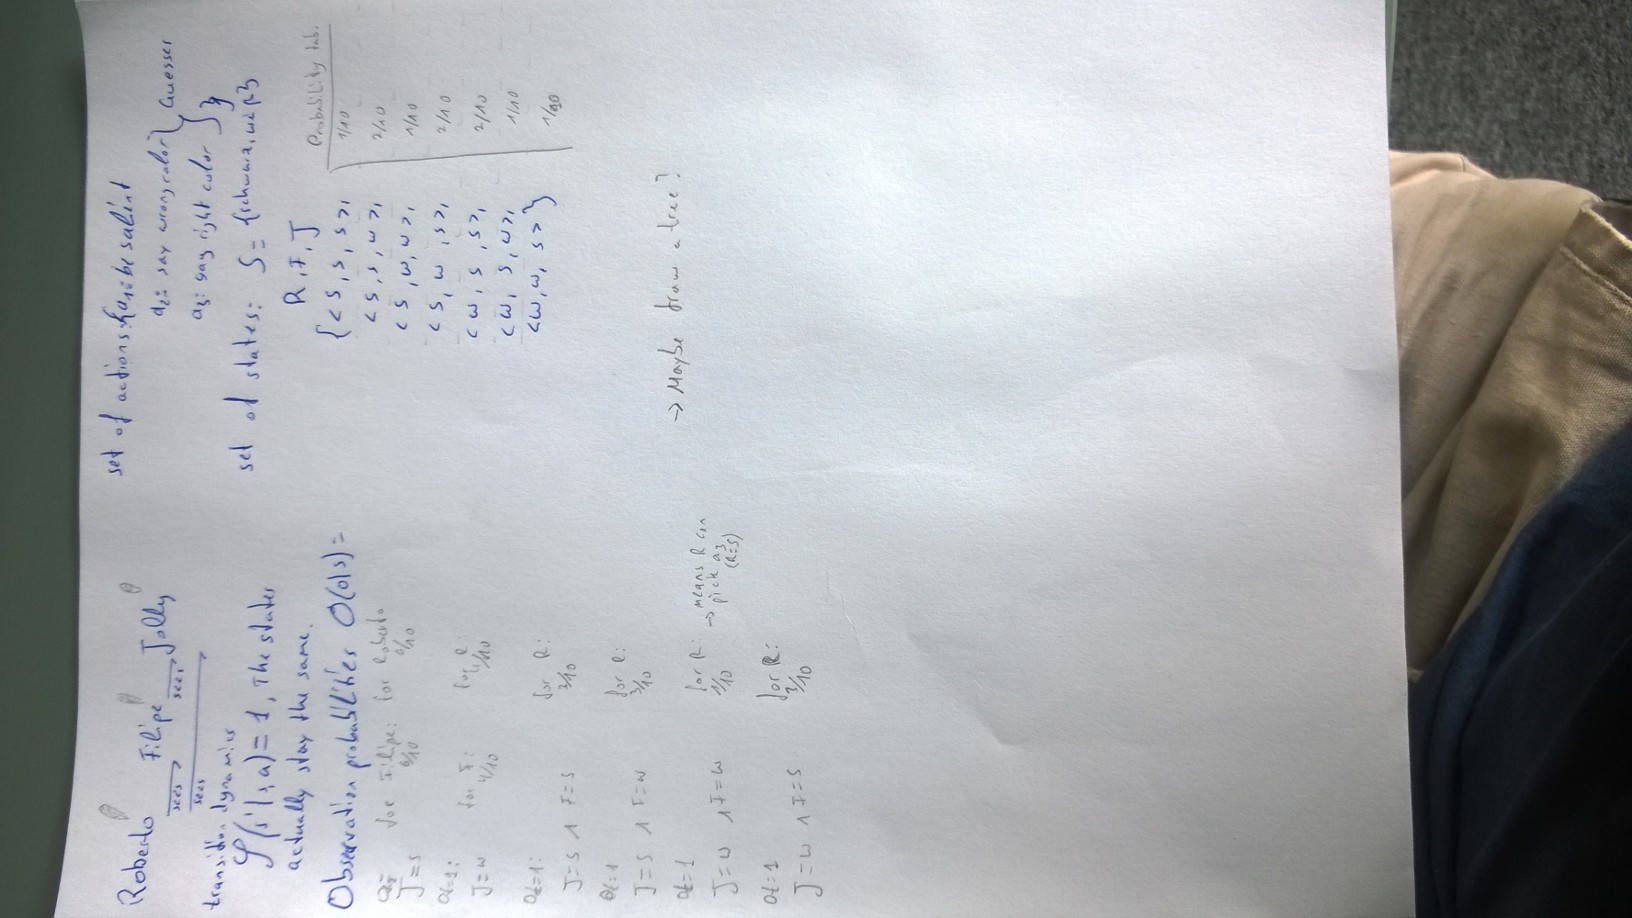 Roberto Filipe Jolly
sees sees
sees
transition dynamics
P(s'|s,a) = 1, The states
actually stay the same.
Observation probabilities O(o|s) =
J=S for Filipe: 6/10 for Roberto 6/10
at=1:
J=w for F: 4/10 for R: 4/10
at=1:
J=S ∧ F=S for R: 3/10
at=1
J=S ∧ F=w for R: 3/10
at=1
J=w ∧ F=w for R: 1/10 → means R can pick a3 (R=S)
at=1
J=w ∧ F=S for R:
set of actions: {a1: be salint
a2: say wrong color } Guesser
a3: say right color }
set of states: S = {schwarz, weiß}
R, F, J Probability tab.
{<s, s, s>, 1/10
<s, s, w>, 2/10
<s, w, w>, 1/10
<s, w, s>, 2/10
<w, s, s>, 2/10
<w, s, w>, 1/10
<w, w, s>}
→ Maybe draw a tree?